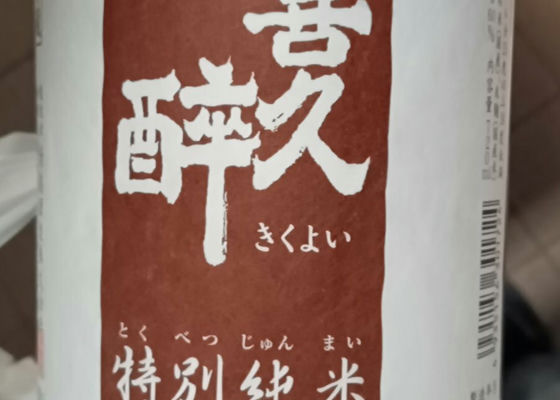 喜久
酔
きくよい
とくべつじゅんまい
特別純米